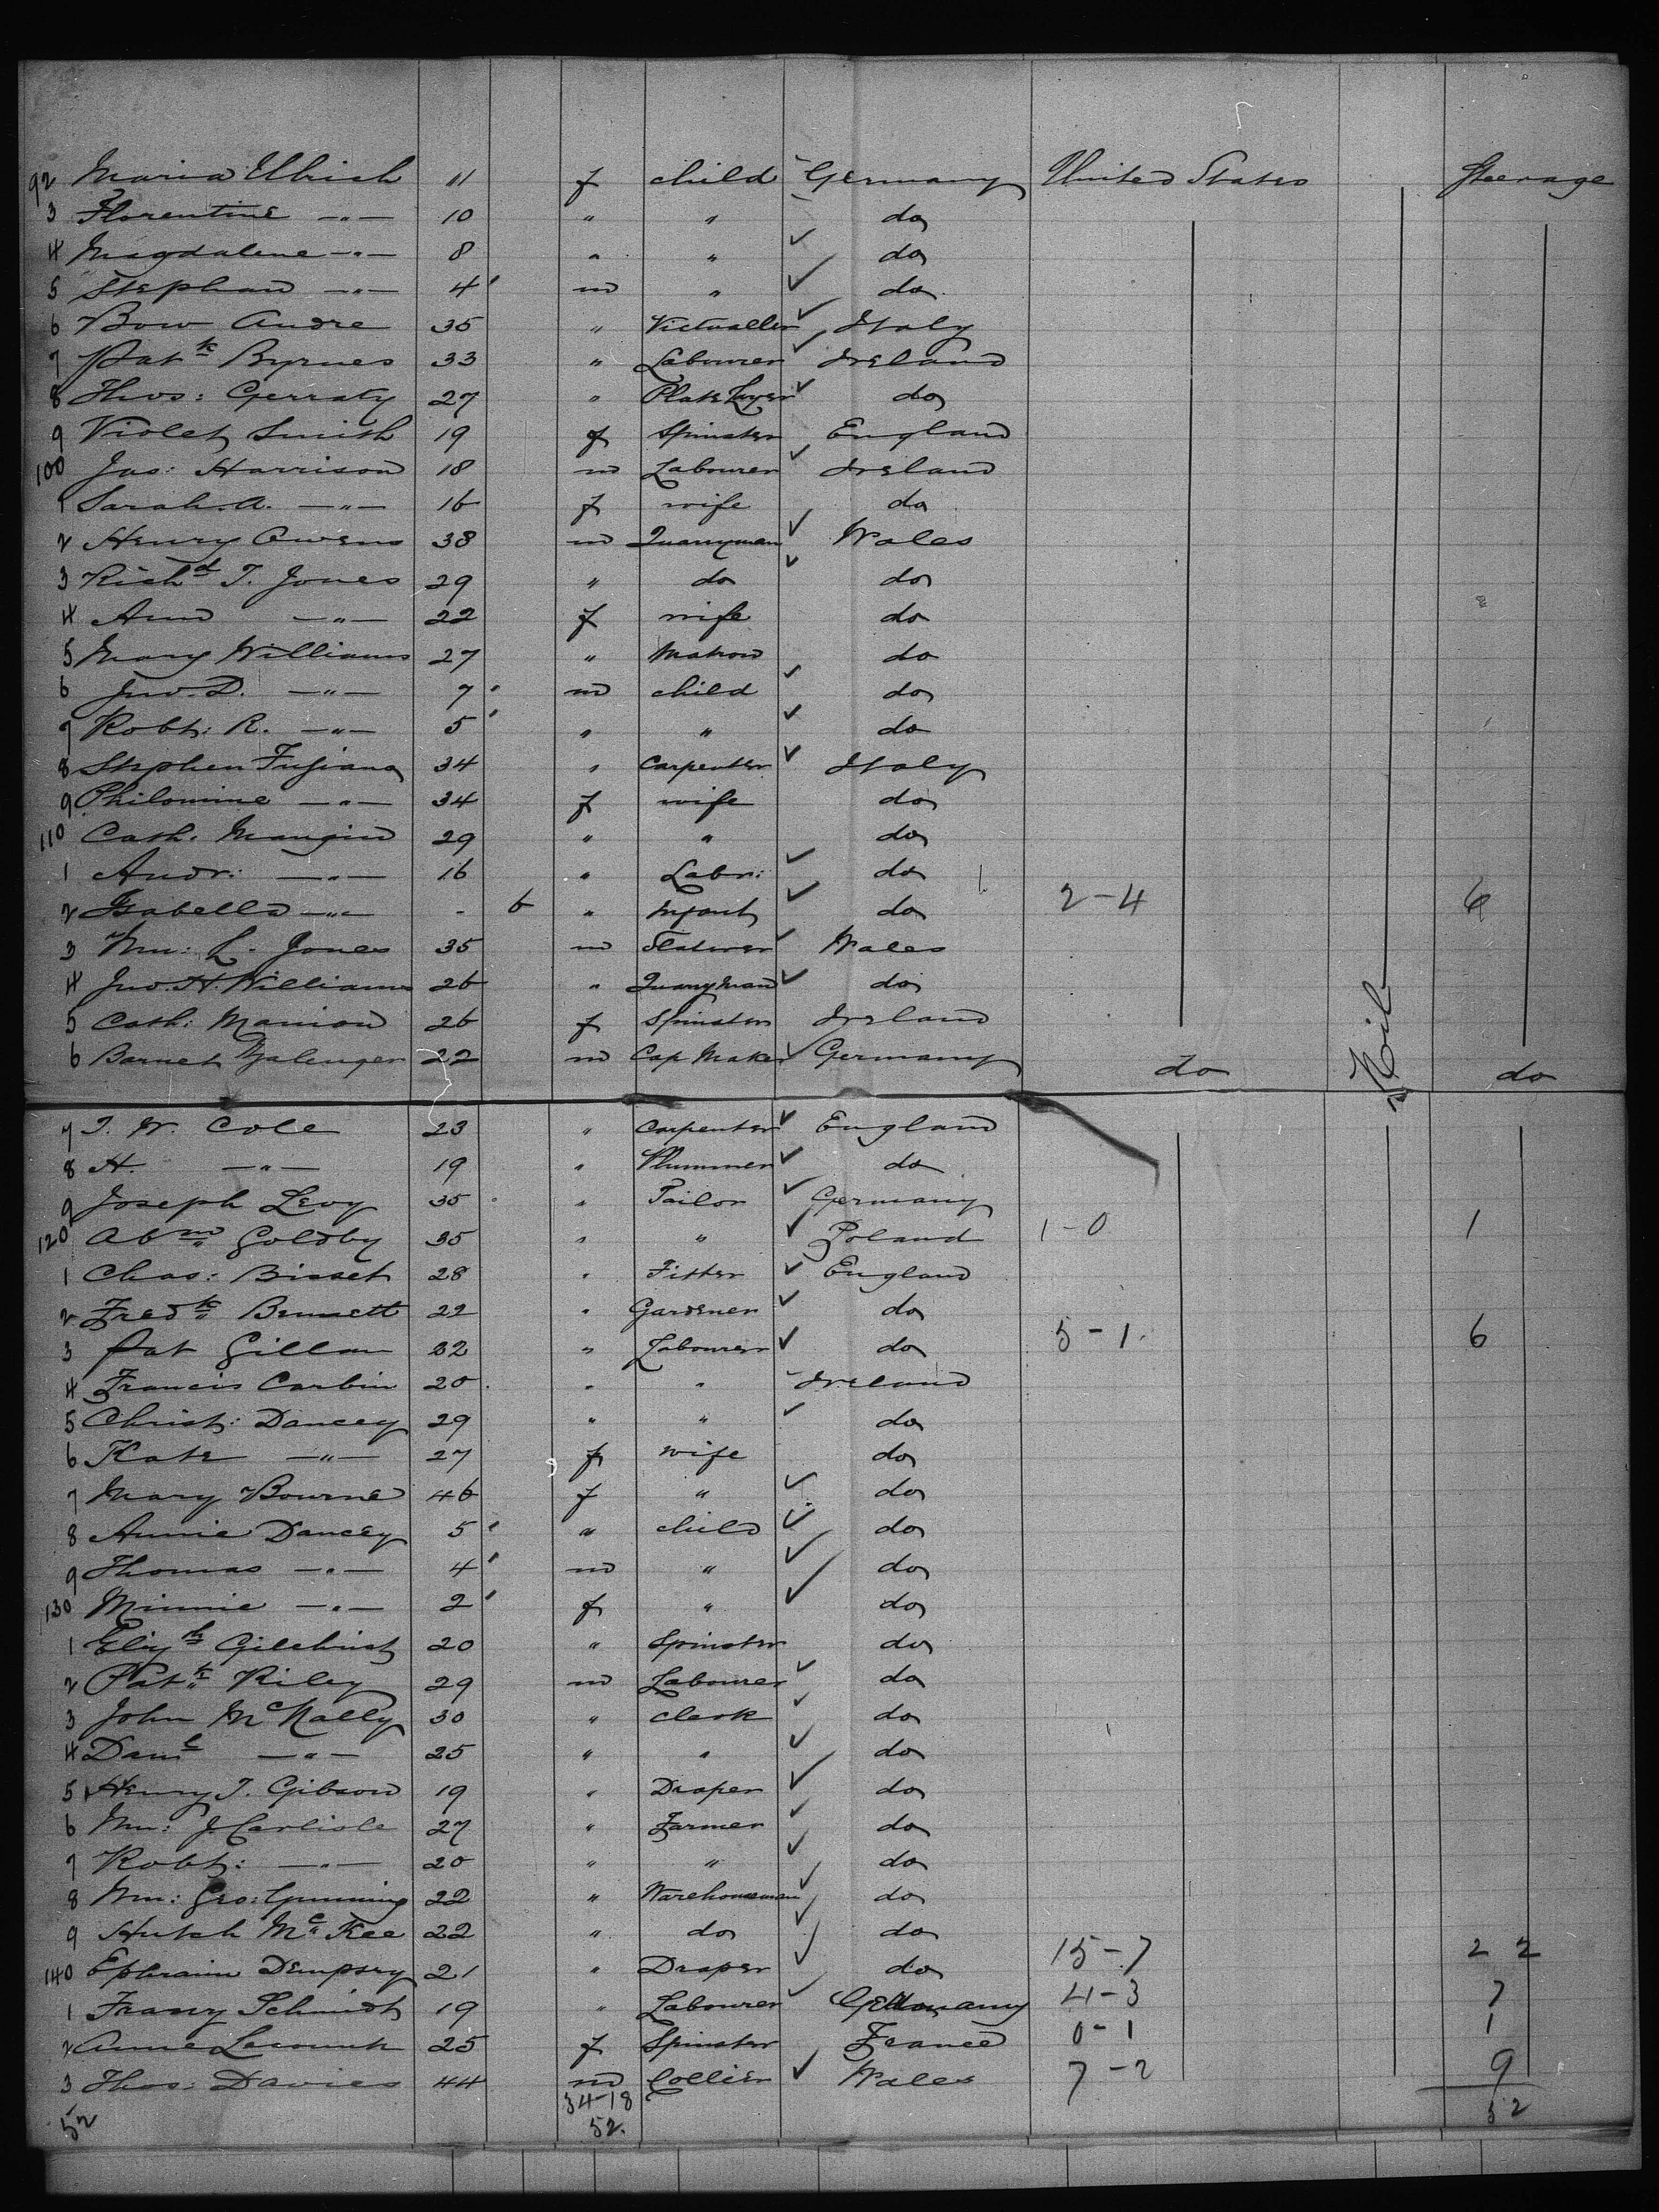 92 Maria Ulrich 11 f child Germany United States Steerage
3 Florentine —"— 10 " " do
4 Magdalene —"— 8 " " do
5 Stephan —"— 4 m " do
6 Bow Andre 35 " Victualler Italy
7 Patk Byrnes 33 " Labourer Ireland
8 Thos: Gerraty 27 " Plate Layer do
9 Violet Smith 19 f Spinster England
100 Jas: Harrison 18 m Labourer Ireland
1 Sarah A. —"— 16 f wife do
2 Henry Owens 38 m Quarryman Wales
3 Richd T. Jones 29 " do do
4 Ann —"— 22 f wife do
5 Mary Williams 27 " Matron do
6 Jno. D. —"— 7 m child do
7 Robt: R. —"— 5 " " do
8 Stephen 34 " Carpenter Italy
9 Philomine —"— 34 f wife do
110 Cath: Mangin 29 " " do
1 Andr: —"— 16 " Labr: do
2 Isabella —"— - 6 " Infant do 2-4 6
3 Wm: L. Jones 35 m Wales
4 Jno. H. Williams 26 " Quarryman do
5 Cath: Manion 26 f Spinster Ireland
6 Barnet 22 m Cap Maker Germany do Nil do
7 T. W. Cole 23 " Carpenter England
8 H. —"— 19 " Plummer do
9 Joseph Levy 35 " Tailor Germany
120 Abm Goldby 35 " " Poland 1-0 1
1 Chas: Bisset 28 " Fitter England
2 Fredk Bennett 22 " Gardener do
3 Pat Gillan 32 " Labourer do 5-1 6
4 Francis Carbin 20 " " Ireland
5 Christ: Dancey 29 " " do
6 Kate —"— 27 f wife do
7 Mary Bourne 46 f " do
8 Annie Dancey 5 " child do
9 Thomas —"— 4 m " do
130 Minnie —"— 2 f " do
1 Elizth Gilchrist 20 " Spinster do
2 Patk Riley 29 m Labourer do
3 John McNally 30 " clerk do
4 Danl —"— 25 " " do
5 Henry T. Gibson 19 " Draper do
6 Wm: J. Carlisle 27 " Farmer do
7 Robt: —"— 20 " " do
8 Wm: Geo: Gunning 22 " Warehouseman do
9 Hutch McKee 22 " do do
140 Ephraim Dempsey 21 " Draper do 15-7 22
1 Franz Schmidt 19 " Labourer Germany 4-3 7
2 Anne Lecount 25 f Spinster France 0-1 1
3 Thos: Davies 44 m Collier Wales 7-2 9
52 34-18 52
52.